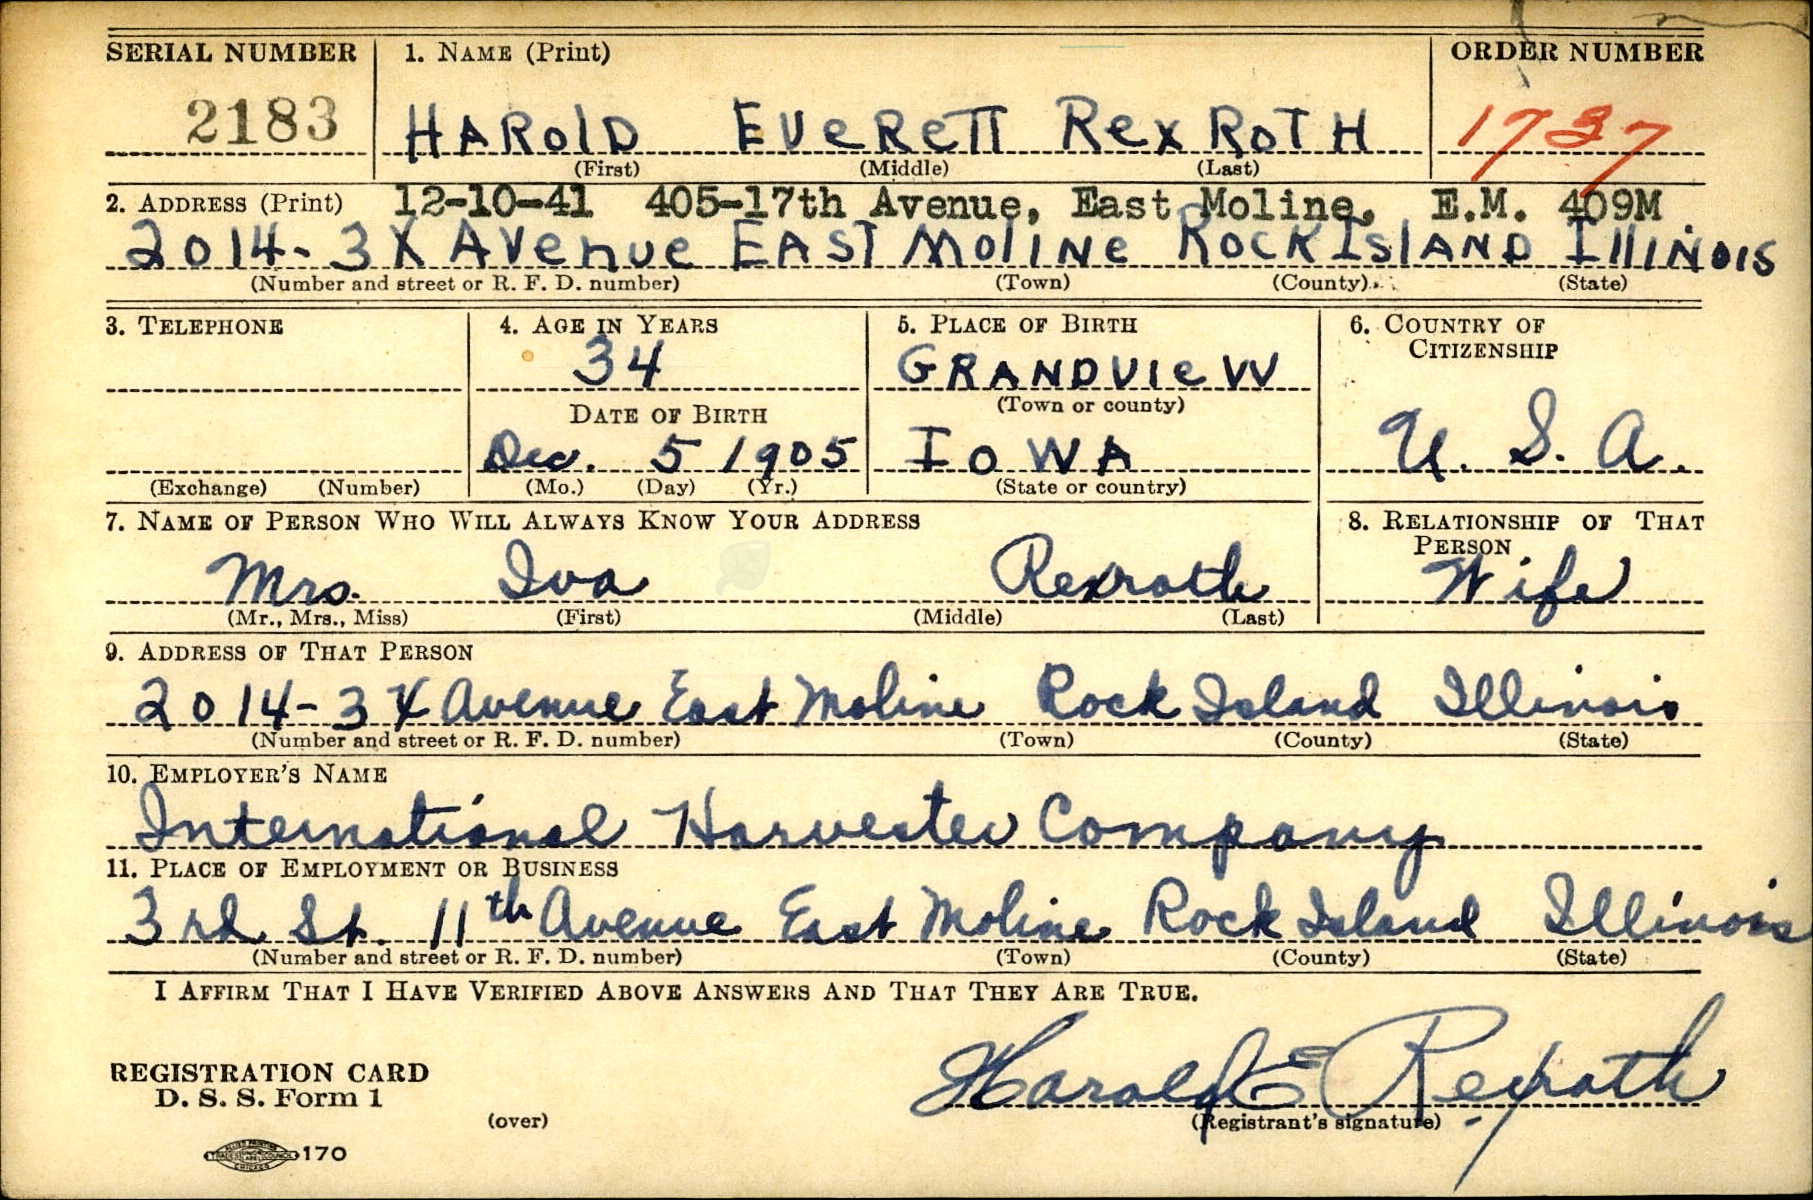 SERIAL NUMBER 1. NAME (Print) ORDER NUMBER
2183 HAROlD EVeReTT RexRoTH 1737
(First) (Middle) (Last)
2. ADDRESS (Print) 12-10-41 405-17th Avenue, East Moline, E.M. 409M
2014-3X AVenue EAST MolINe RockIslAND IllINOIS
(Number and street or R. F. D. number) (Town) (County) (State)
3. TELEPHONE 4. AGE IN YEARS 5. PLACE OF BIRTH 6. COUNTRY OF
CITIZENSHIP
34 GRANDVIeW
DATE OF BIRTH (Town or county)
Dec. 5 1905 IOWA U. S. A.
(Exchange) (Number) (Mo.) (Day) (Yr.) (State or country)
7. NAME OF PERSON WHO WILL ALWAYS KNOW YOUR ADDRESS 8. RELATIONSHIP OF THAT
PERSON
Mrs. Iva Rexroth Wife
(Mr., Mrs., Miss) (First) (Middle) (Last)
9. ADDRESS OF THAT PERSON
2014-3X Avenue East Moline Rock Island Illinois
(Number and street or R. F. D. number) (Town) (County) (State)
10. EMPLOYER'S NAME
International Harvester Company
11. PLACE OF EMPLOYMENT OR BUSINESS
3rd St. 11th Avenue East Moline Rock Island Illinois
(Number and street or R. F. D. number) (Town) (County) (State)
I AFFIRM THAT I HAVE VERIFIED ABOVE ANSWERS AND THAT THEY ARE TRUE.
Harold E Rexroth
REGISTRATION CARD
D. S. S. Form 1
(over) (Registrant's signature)
170